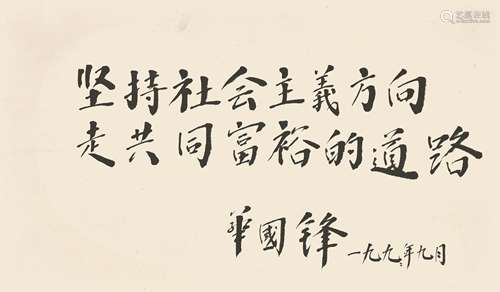 坚持社会主義方向
走共同富裕的道路
華國锋 一九九〇年九月